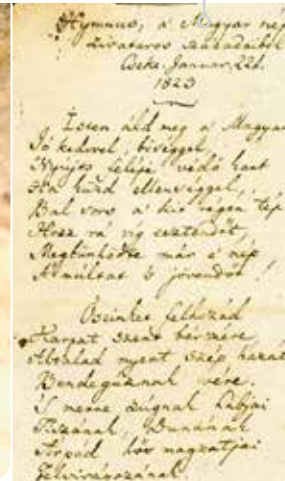 Hymnus, a' Magyar nép
zivataros századaiból
Cseke. Januar. 22d.
1823
Isten áldd meg a' Magyar
Jó kedvvel, bőséggel,
Nyújts feléje védő kart
Ha küzd ellenséggel,
Bal sors a' kit régen tép
Hozz rá víg esztendőt,
Megbűnhödte már e' nép
A' multat 's jövendőt!
Őseinket felhozád
Kárpát szent bérczére
Általad nyert szép hazát
Bendegúznak vére.
'S merre zúgnak habjai
Tiszának, Dunának
Árpád hős magzatjai
Felvirágozának.